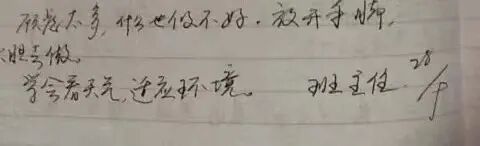 顾虑太多,什么也做不好。放开手脚,
大胆去做。
学会看天气,适应环境。 班主任 28/5